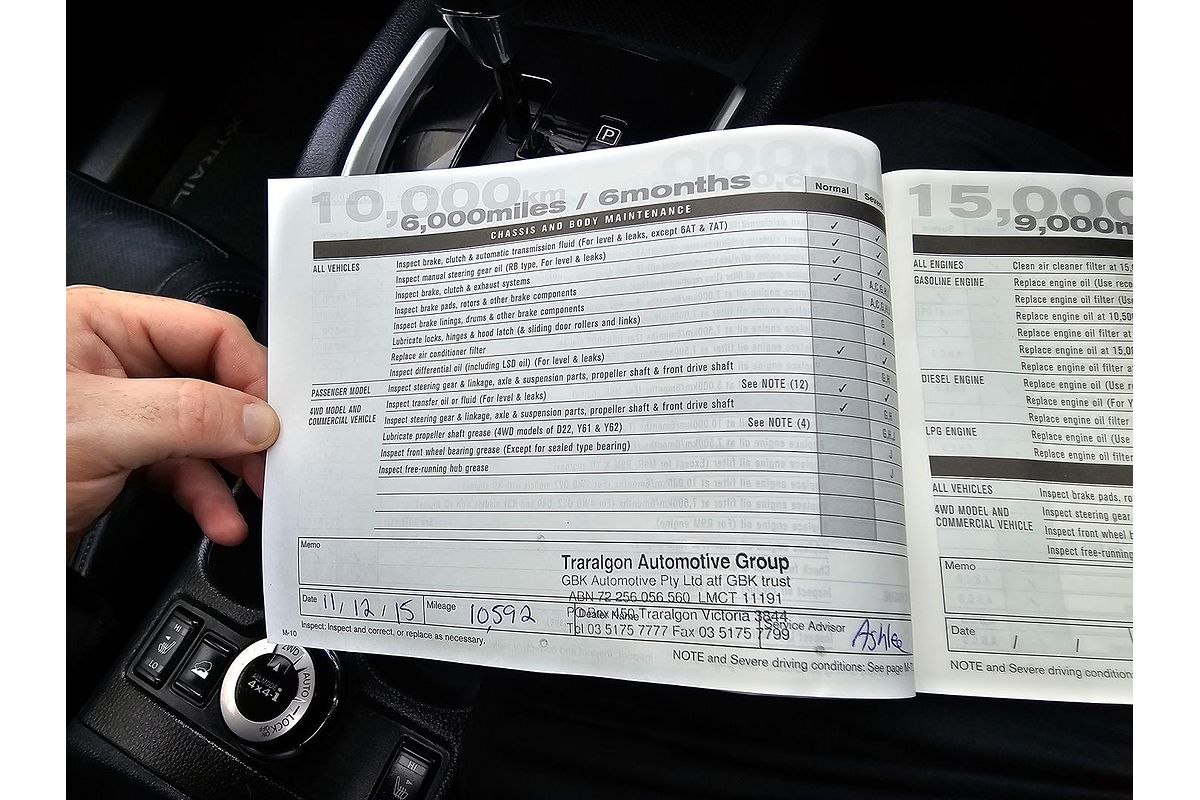 P
X-TRAIL
10,000km
6,000miles / 6months
Normal
CHASSIS AND BODY MAINTENANCE
ALL VEHICLES
Inspect brake, clutch & automatic transmission fluid (For level & leaks, except 6AT & 7AT)
Inspect manual steering gear oil (RB type, For level & leaks)
Inspect brake, clutch & exhaust systems
Inspect brake pads, rotors & other brake components
Inspect brake linings, drums & other brake components
Lubricate locks, hinges & hood latch (& sliding door rollers and links)
Replace air conditioner filter
Inspect differential oil (including LSD oil) (For level & leaks)
PASSENGER MODEL
Inspect steering gear & linkage, axle & suspension parts, propeller shaft & front drive shaft
4WD MODEL AND
COMMERCIAL VEHICLE
Inspect transfer oil or fluid (For level & leaks) See NOTE (12)
Inspect steering gear & linkage, axle & suspension parts, propeller shaft & front drive shaft
Lubricate propeller shaft grease (4WD models of D22, Y61 & Y62) See NOTE (4)
Inspect front wheel bearing grease (Except for sealed type bearing)
Inspect free-running hub grease
Memo
Traralgon Automotive Group
GBK Automotive Pty Ltd atf GBK trust
ABN 72 256 056 560 LMCT 11191
PO Box 450 Traralgon Victoria 3844
Tel 03 5175 7777 Fax 03 5175 7799
Date 11/12/15 Mileage 10,592 Dealer Name Service Advisor Ashlee
M-10 Inspect: Inspect and correct, or replace as necessary.
NOTE and Severe driving conditions: See page M-
15,000
9,000m
ALL ENGINES
Clean air cleaner filter at 15,0
GASOLINE ENGINE
Replace engine oil (Use reco
Replace engine oil filter (Use
Replace engine oil at 10,50
Replace engine oil filter at
Replace engine oil at 15,0
Replace engine oil filter at
DIESEL ENGINE
Replace engine oil (Use r
Replace engine oil (For Y
Replace engine oil filter
LPG ENGINE
Replace engine oil (Use
Replace engine oil filter
ALL VEHICLES
Inspect brake pads, ro
4WD MODEL AND
COMMERCIAL VEHICLE
Inspect steering gear
Inspect front wheel b
Inspect free-running
Memo
Date / /
NOTE and Severe driving condition
HI
LO
2WD
AUTO
LOCK
4x4-i
HI